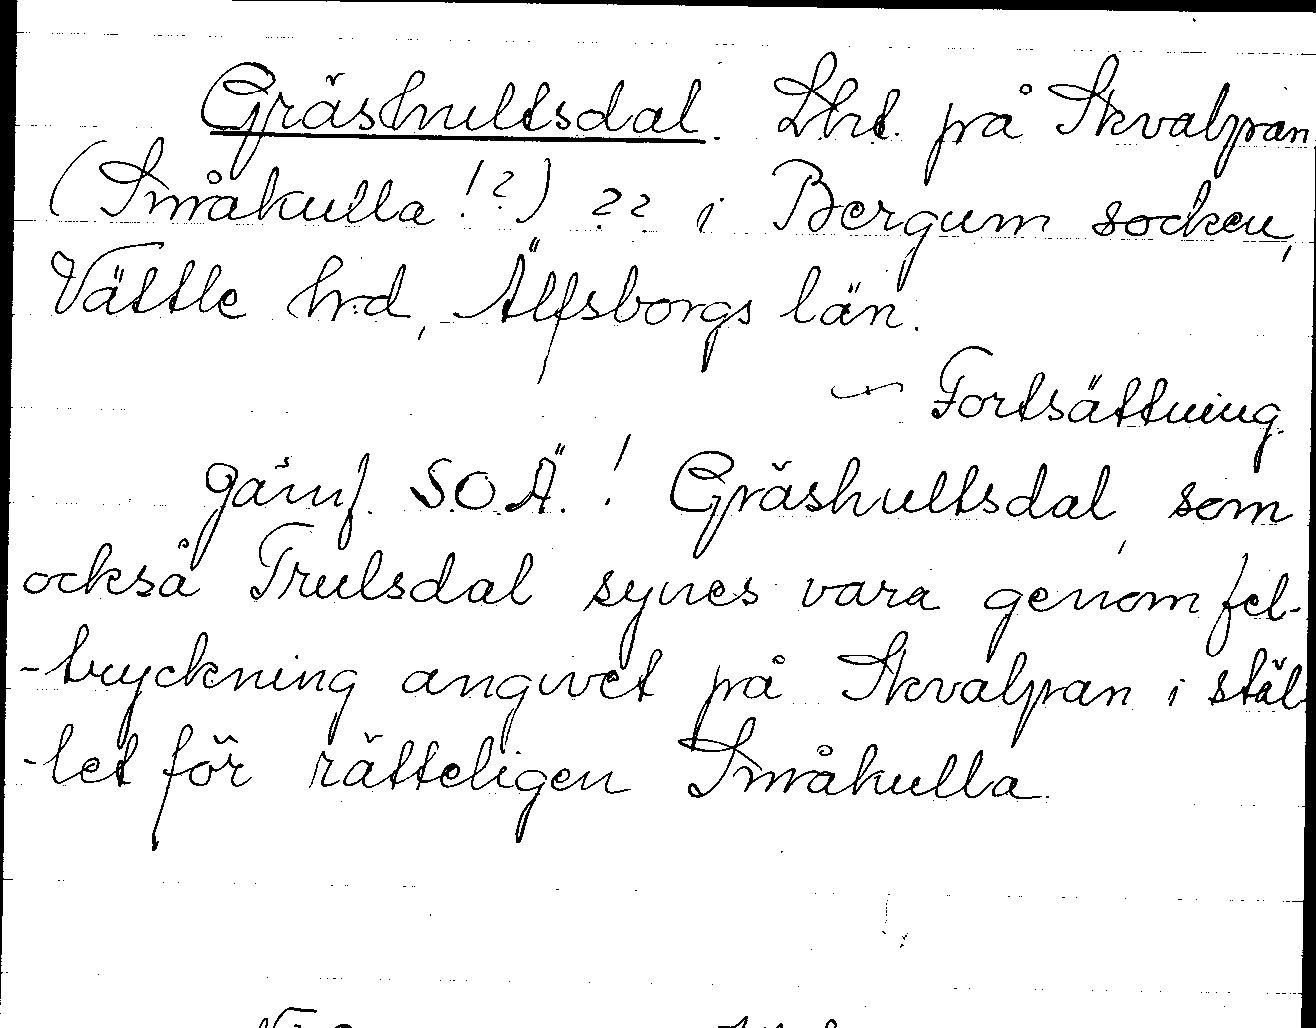 Gräshultsdal. Lht. på Skvalpan
(Småkulla!?) ?? i Bergum socken,
Vättle hrd, Älfsborgs län.
— Fortsättning.
Jämf. S.O.Ä.! Gräshultsdal, som
också Trulsdal synes vara genom fel-
-tryckning angivet på Skvalpan i stäl-
-let för rätteligen Småkulla.